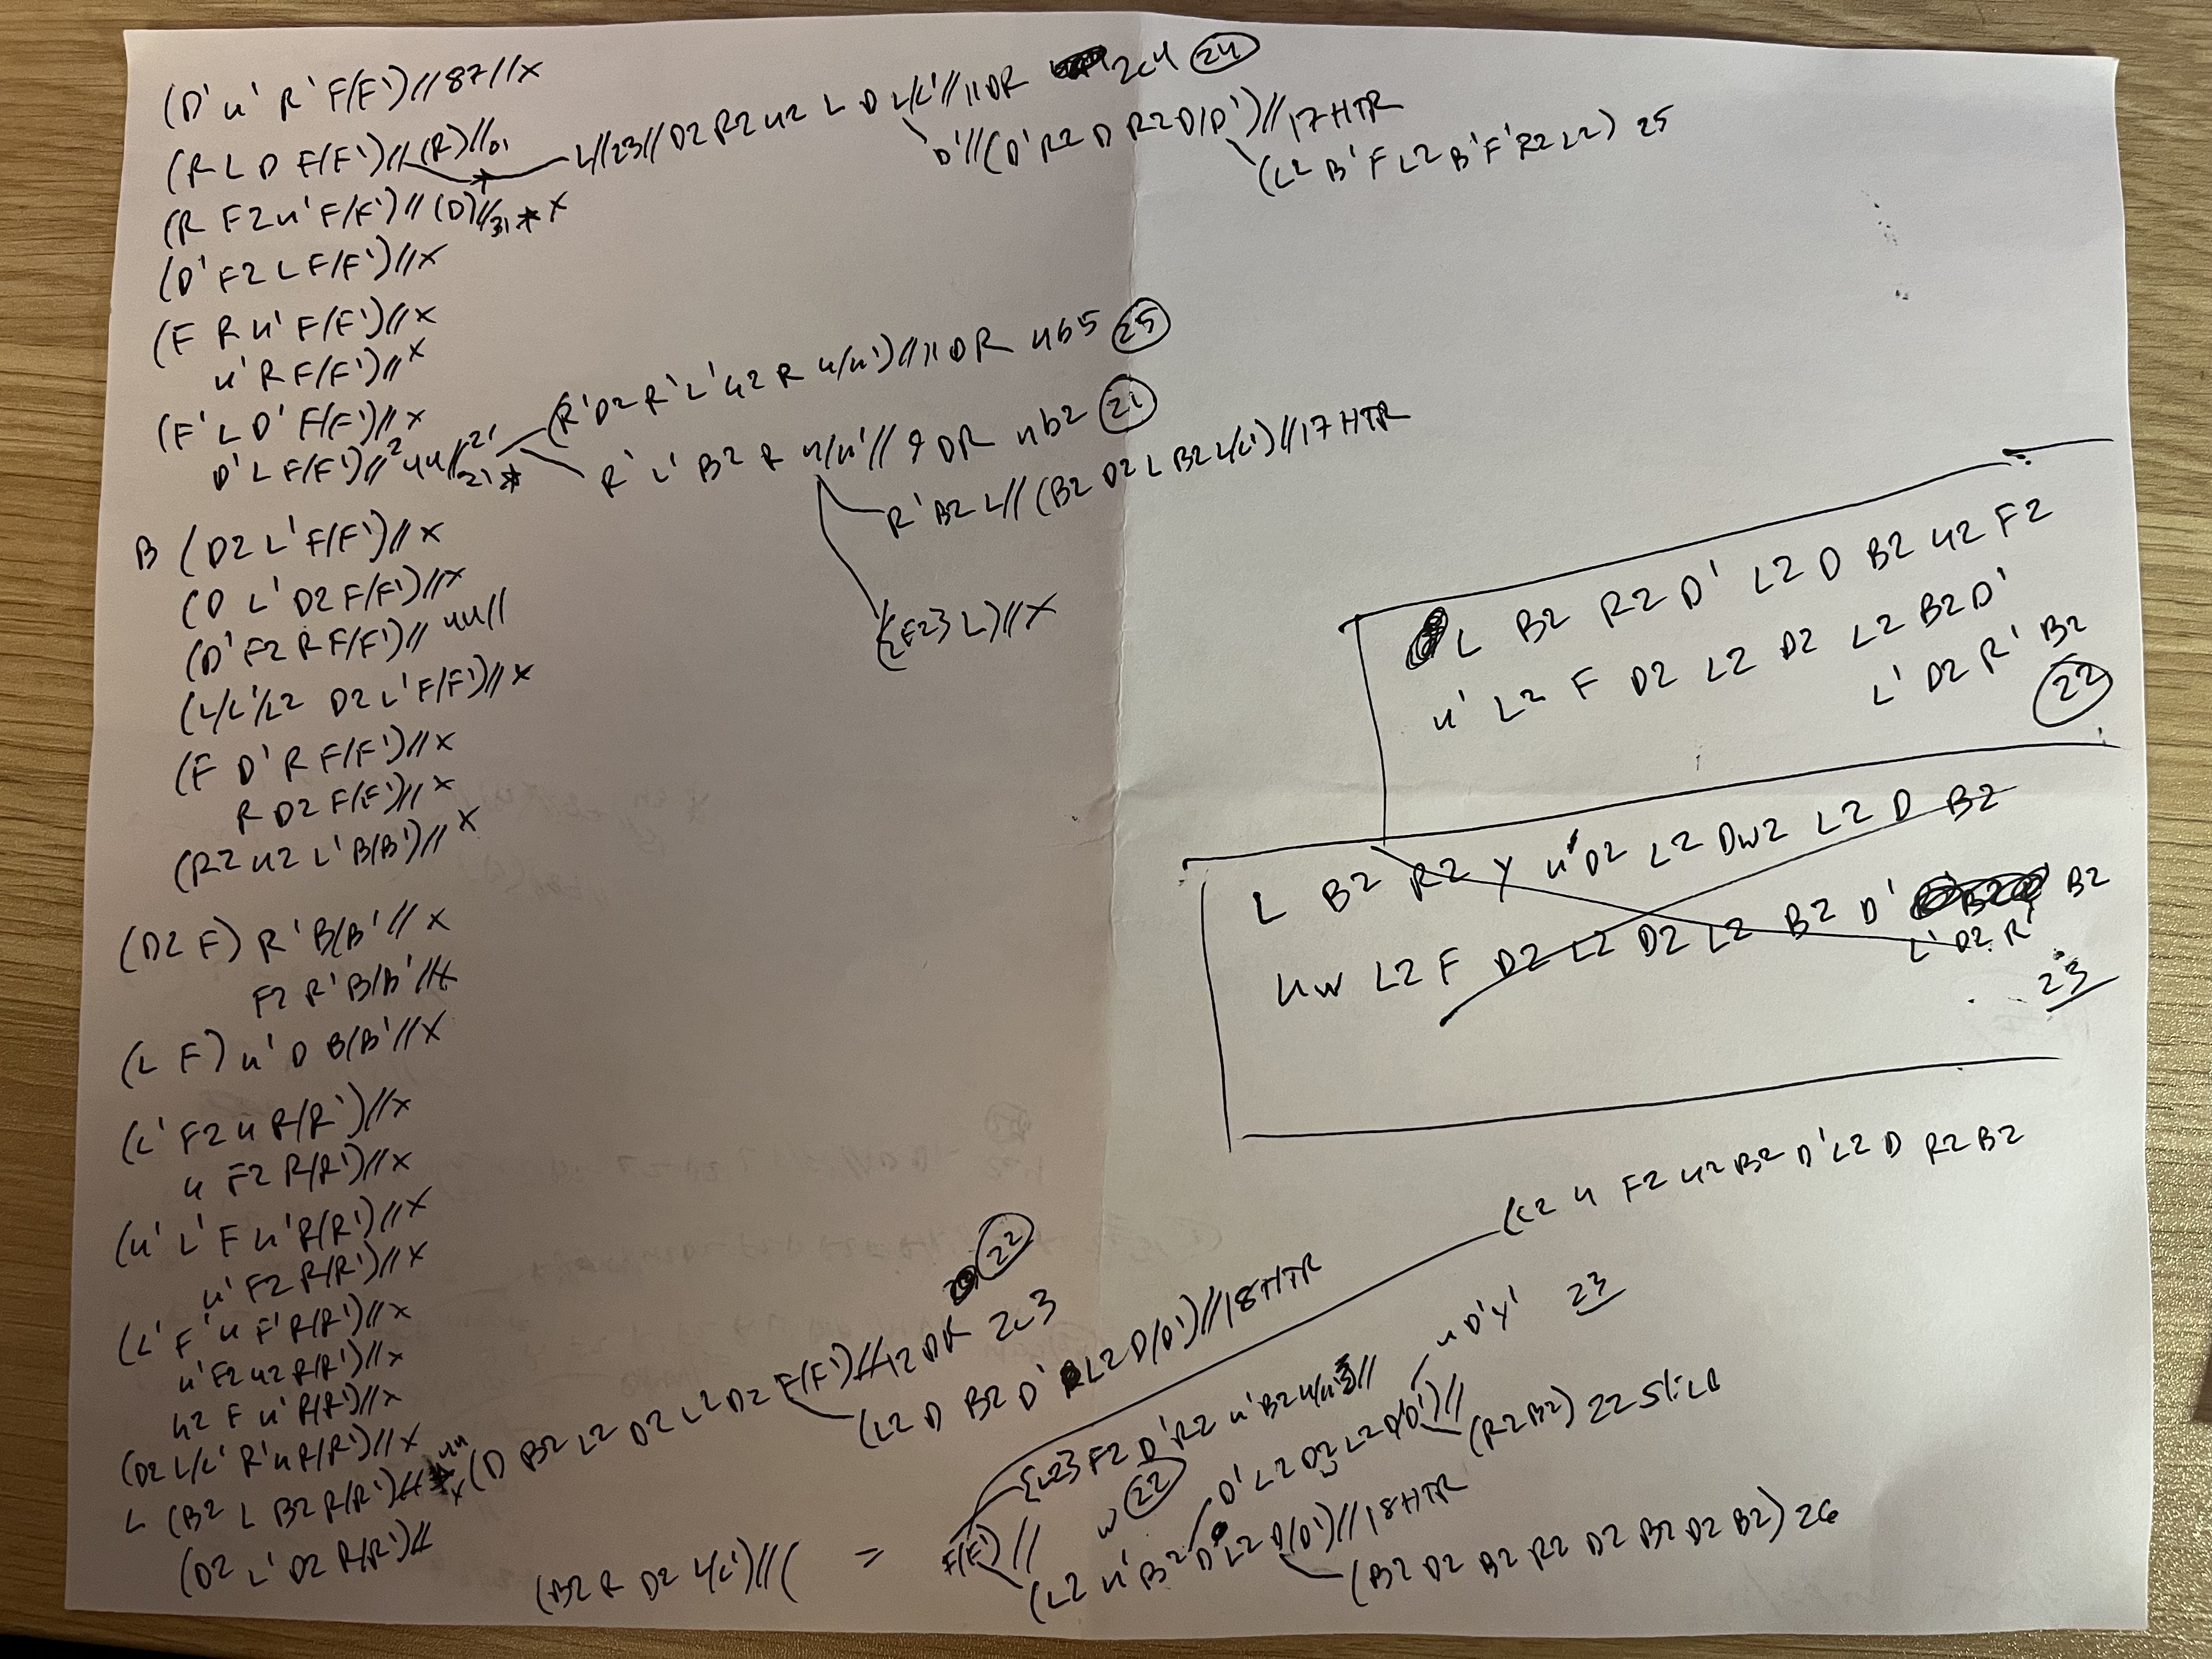 (D' u' R' F/F')//87//x
(R L D F/F')//(R)//01
L//23//D2 R2 u2 L D L/L'//11DR 2c4 24
D'//(D' R2 D R2 D/D')//17 HTR
(L2 B' F L2 B' F' R2 L2) 25
(R F2 u' F/F')//(D)//31* x
(D' F2 L F/F')//x
(F R u' F/F')//x
u' R F/F')//x
(F' L D' F/F')//x
D' L F/F')//2 4u//21 21*
(R' D2 R' L' u2 R u/u')//11 DR 4b5 25
R' L' B2 R u/u'//9 DR 4b2 21
R' B2 L//(B2 D2 L B2 L/L')//17 HTR
{E23 L)//X
B (D2 L' F/F')//x
(D L' D2 F/F')//x
(D' F2 R F/F')//4u//
(L/L'/L2 D2 L' F/F')//x
(F D' R F/F')//x
R D2 F/F')//x
(R2 u2 L' B/B')//x
(D2 F) R' B/B'//x
F2 R' B/B'//x
(L F) u' D B/B'//x
(L' F2 u R/R')//x
u F2 R/R')//x
(u' L' F u' R/R')//x
u' F2 R/R')//x
(L' F' u F' R/R')//x
u' F2 u2 R/R')//x
u2 F u' R/R')//x
(D2 L/L' R' u R/R')//x
L (B2 L B2 R/R')//4u
x(D B2 L2 D2 L2 D2 F/F')//12 DR 2c3 22
(L2 D B2 D' L2 D/D')//18 HTR
(D2 L' D2 R/R')//
(B2 R D2 L/L')//(
= F/F')//
{L23 F2 D' R2 u' B2 u/u'3//
(L2 u F2 u2 B2 D' L2 D R2 B2
w 22
(L2 u' B2 D' L2 D/D')//18 HTR
D' L2 D2 L2 D/D')//
u D' y' 23
(R2 B2) 22 Slice
(B2 D2 B2 R2 D2 B2 D2 B2) 26
L B2 R2 D' L2 D B2 u2 F2
u' L2 F D2 L2 D2 L2 B2 D'
L' D2 R' B2
22
L B2 R2 y u' D2 L2 Dw2 L2 D B2
uw L2 F D2 L2 D2 L2 B2 D' B2
L' D2 R'
23